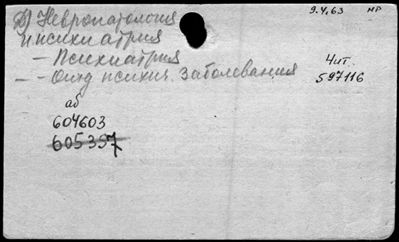 Д) Невропатология 9.4.63 НР
и психиатрия
— Психиатрия Чит.
— — Отд психич. заболевания 597116
аб
604603
605357